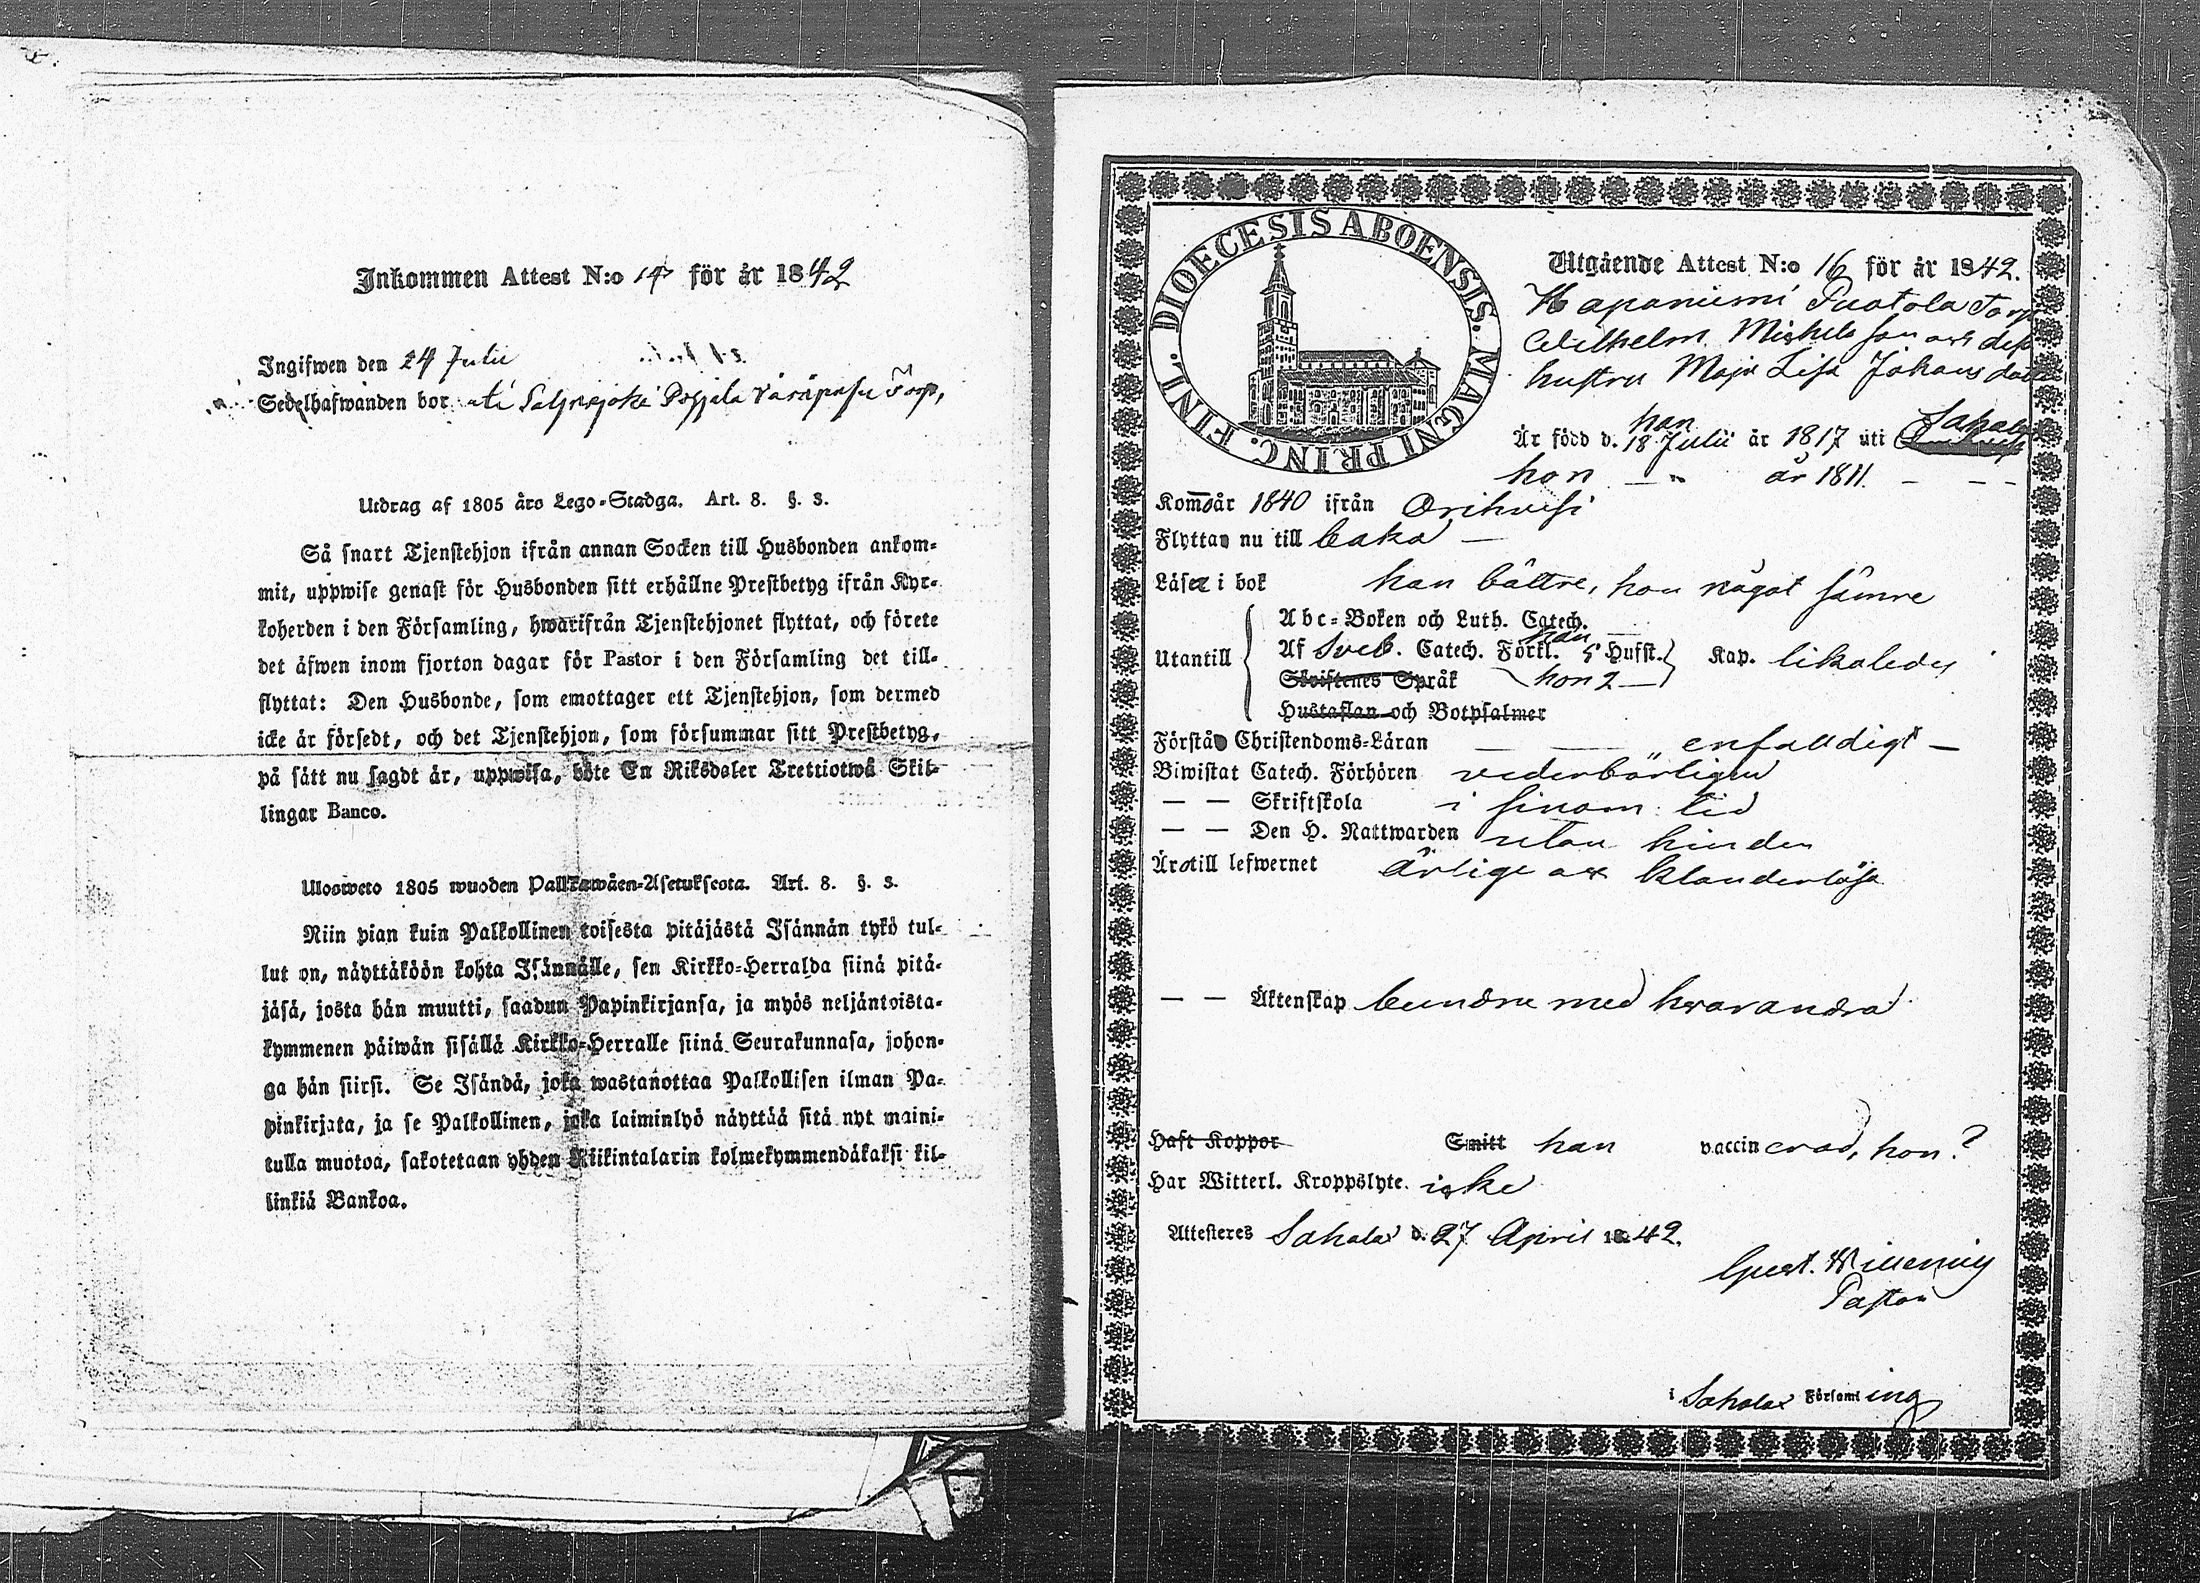 Inkommen Attest N:o 14 för år 1842
Ingifwen den 24 Julii
Sedelhafwanden bor uti Torp,
Utdrag af 1805 års Lego-Stadga. Art. 8. §. 3.
Så snart Tjenstehjon ifrån annan Socken till Husbonden ankom-
mit, uppwise genast för Husbonden sitt erhållne Prestbetyg ifrån Kyr-
koherden i den Församling, hwarifrån Tjenstehjonet flyttat, och förete
det äfwen inom fjorton dagar för Pastor i den Församling det till-
flyttat: Den Husbonde, som emottager ett Tjenstehjon, som dermed
icke är försedt, och det Tjenstehjon, som försummar sitt Prestbetyg,
på sätt nu sagdt är, uppwisa, böte En Riksdaler Trettiotwå Skil-
lingar Banco.
Ulosweto 1805 wuoden Palkkawäen-Asetuksesta. Art. 8. §. 3.
Niin pian kuin Palkollinen toisesta pitäjästä Isännän tykö tul-
lut on, näyttäköön kohta Isännälle, sen Kirkko-Herralda siinä pitä-
jäsä, josta hän muutti, saadun Papinkirjansa, ja myös neljäntoista-
kymmenen päiwän sisällä Kirkko-Herralle siinä Seurakunnasa, johon-
ga hän siirsi. Se Isändä, joka wastanottaa Palkollisen ilman Pa-
pinkirjata, ja se Palkollinen, joka laiminlyö näyttää sitä nyt maini-
tulla muotoa, sakotetaan yhden Riikintalarin kolmekymmendäkaksi kil-
linkiä Bankoa.
DIOECESIS ABOENSIS. MAGNI PRINC. FINL.
Utgående Attest N:o 16 för år 1842.
Hapaniemi Puotola Torp
Wilhelm Michelsson och dess
hustru Maja Lisa Johans dotter
han
Är född d. 18 Julii år 1817 uti Sahalax
hon — " år 1811. - - -
Kom år 1840 ifrån Orihvesi
Flyttar nu till Eura —
Läser i bok han bättre, hon något sämre
Abc-Boken och Luth. Catech.
han
Utantill Af Sveb. Catech. Förkl. 5 Hufst. Kap. likaledes
Skriftenes Språk hon 2 —
Hustaflan och Botpsalmer
Förstår Christendoms-Läran — — " enfaldigt —
Biwistat Catech. Förhören vederbörligen
— — Skriftskola i sinom tid
— — Den H. Nattwarden utan hinder
Är till lefwernet ärlige och klanderlösa
— — Äktenskap bundne med hvarandra
Haft Koppor Smitt han vaccinerad, hon?
Har Witterl. Kroppslyte icke
Attesteres Sahalax d. 27 April 1842.
Gust. Willenius
Pastor
i Sahalax Församling